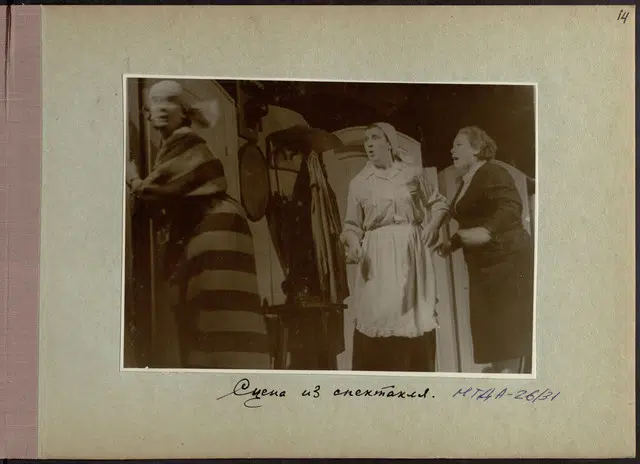 14
Сцена из спектакля. МТДА-26/31